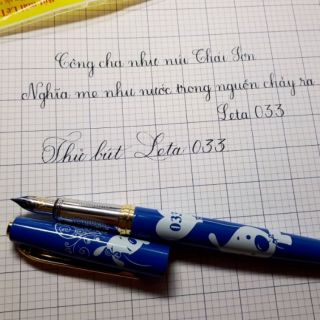 Công cha như núi Thái Sơn
Nghĩa mẹ như nước trong nguồn chảy ra
Leta 033
Thử bút Leta 033
033